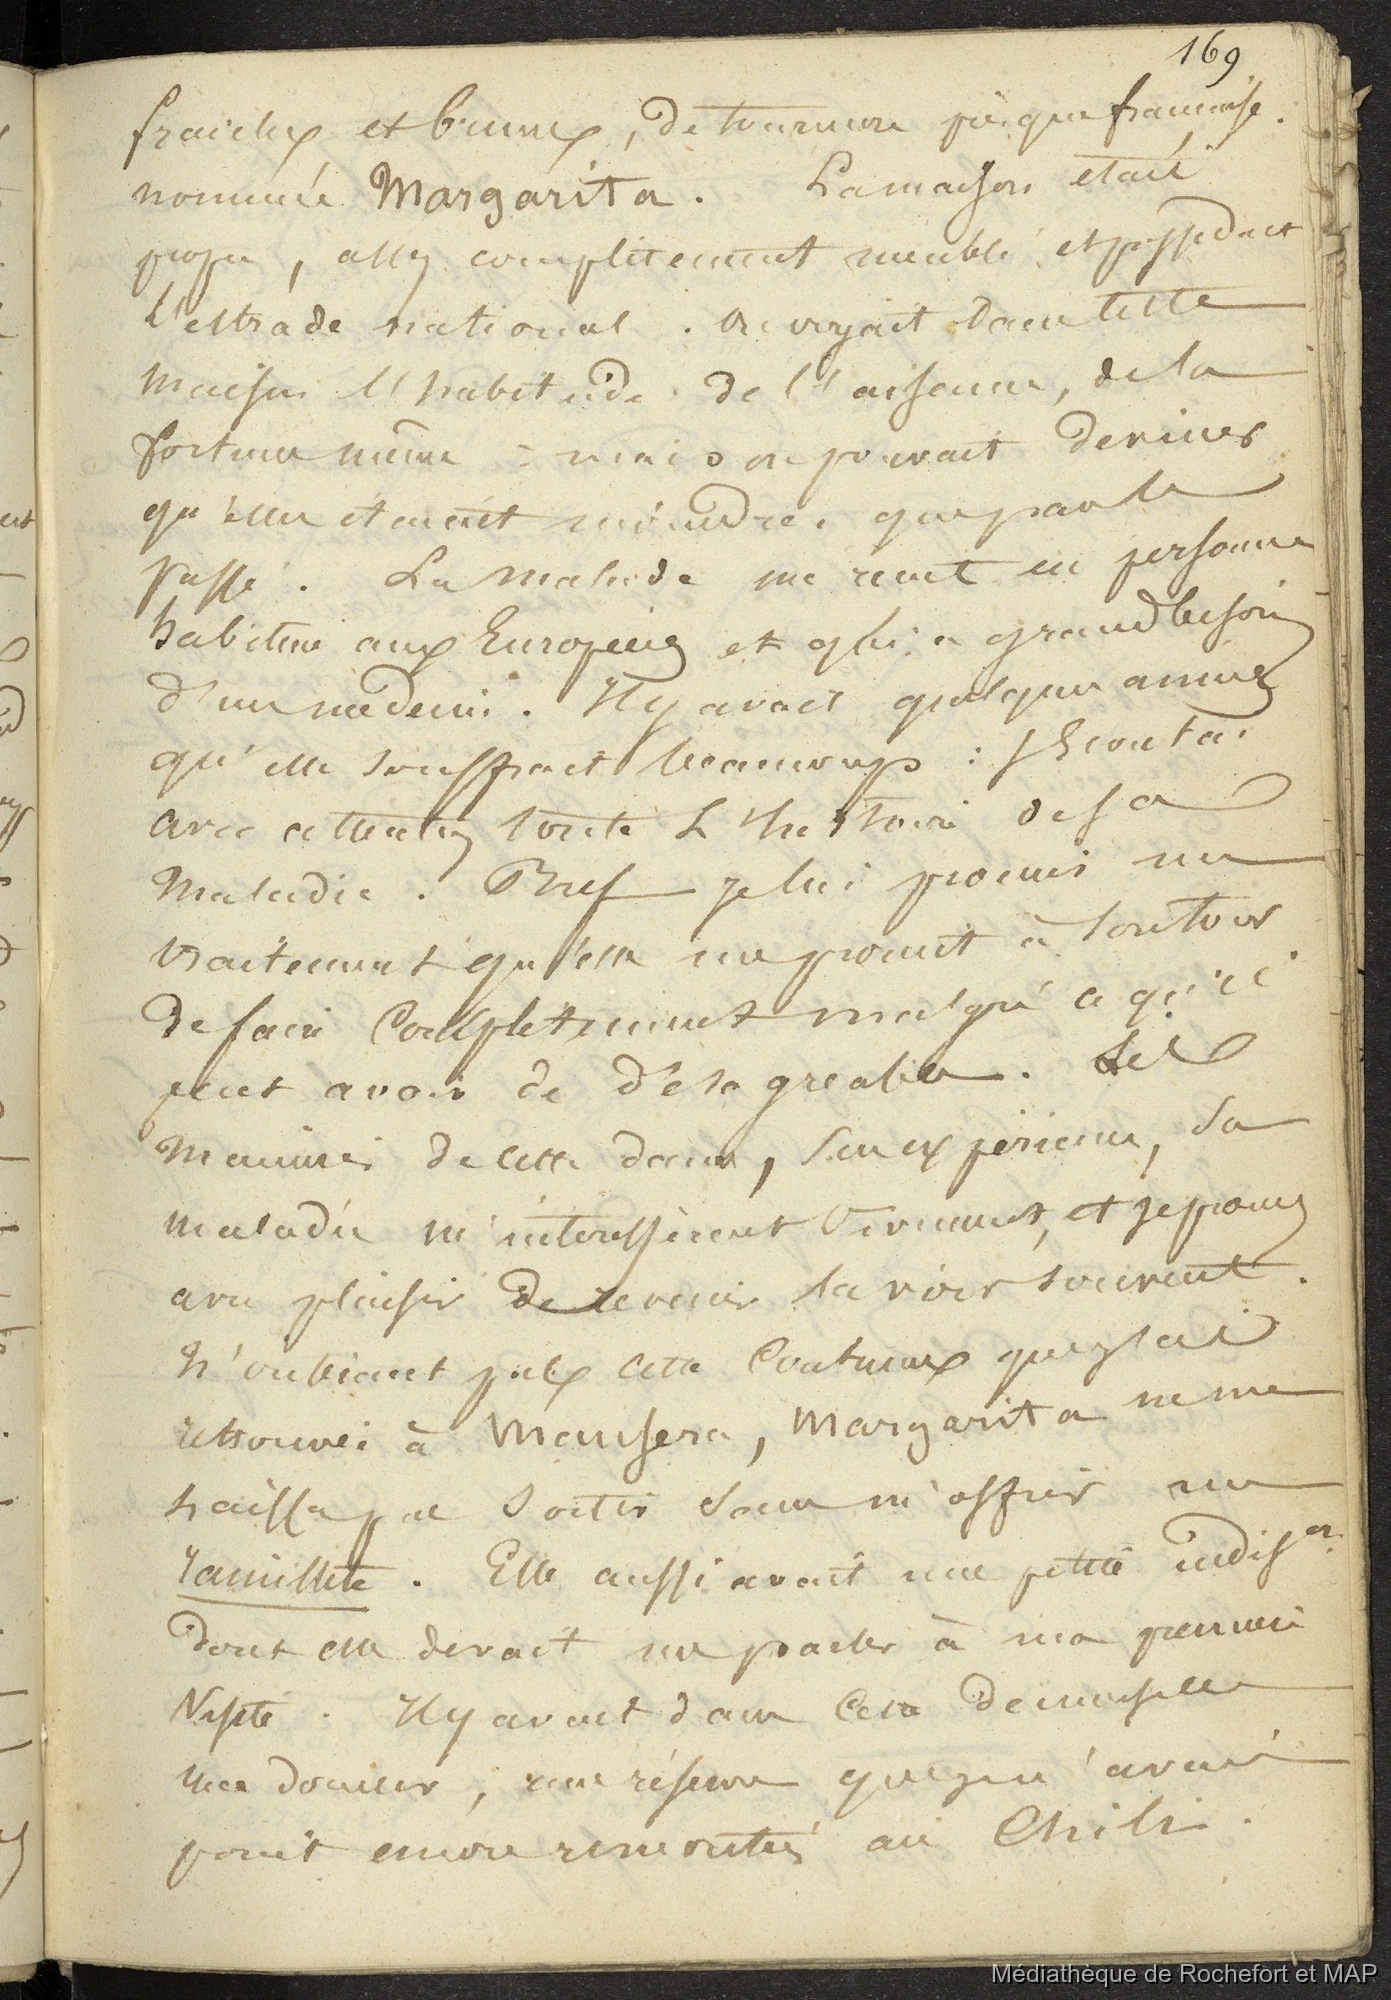 169
fraiche et brune, de tournure presque française.
nommée Margarita. La maison était
propre, assez complètement meublé et possedant
l'estrade national. On voyait dans cette
maison l'habitude de l'aisance, de la
fortune même : mais on pouvait deviner
qu'elles étaient moindres que par le
passé. La malade me reçut en personne
habituée aux Européens et qui a grand besoin
d'un médecin. Il y avait quelques années
qu'elle souffrait beaucoup : J'écoutai
avec attention toute l'histoire de sa
maladie. Bref je lui promis un
traitement qu'elle me promit à son tour
de faire complètement malgré ce qu'il
peut avoir de désagréable. Les
manières de cette dame, son expérience, sa
maladie m'intéressèrent vivement, et je promis
avec plaisir de revenir la voir souvent.
N'oubliant pas cette coutume que j'ai
retrouvée à Mansera, Margarita ne me
laissa pas sortir sans m'offrir un
ramillete. Elle aussi avait une petite indison
dont elle devait me parler à ma première
visite. Il y avait dans cette demoiselle
une douceur, une réserve que je n'avais
point encore rencontrées au Chili.
Médiathèque de Rochefort et MAP